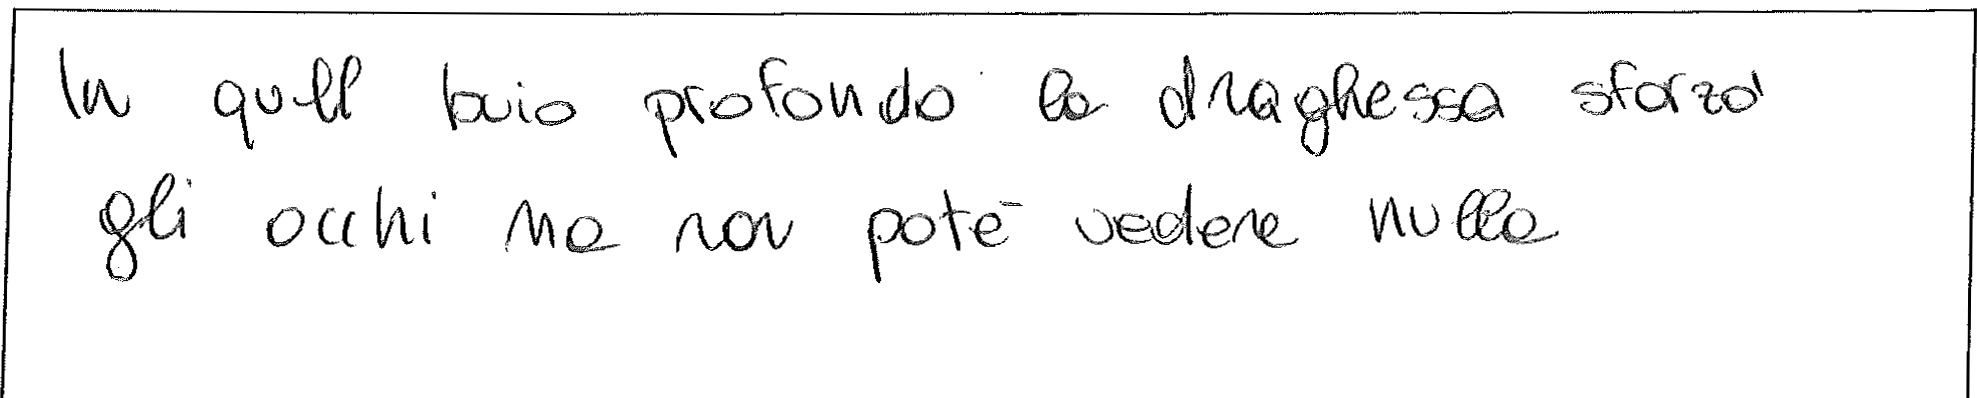 In quell buio profondo la draghessa sforzò
gli occhi ma non potè vedere nulla